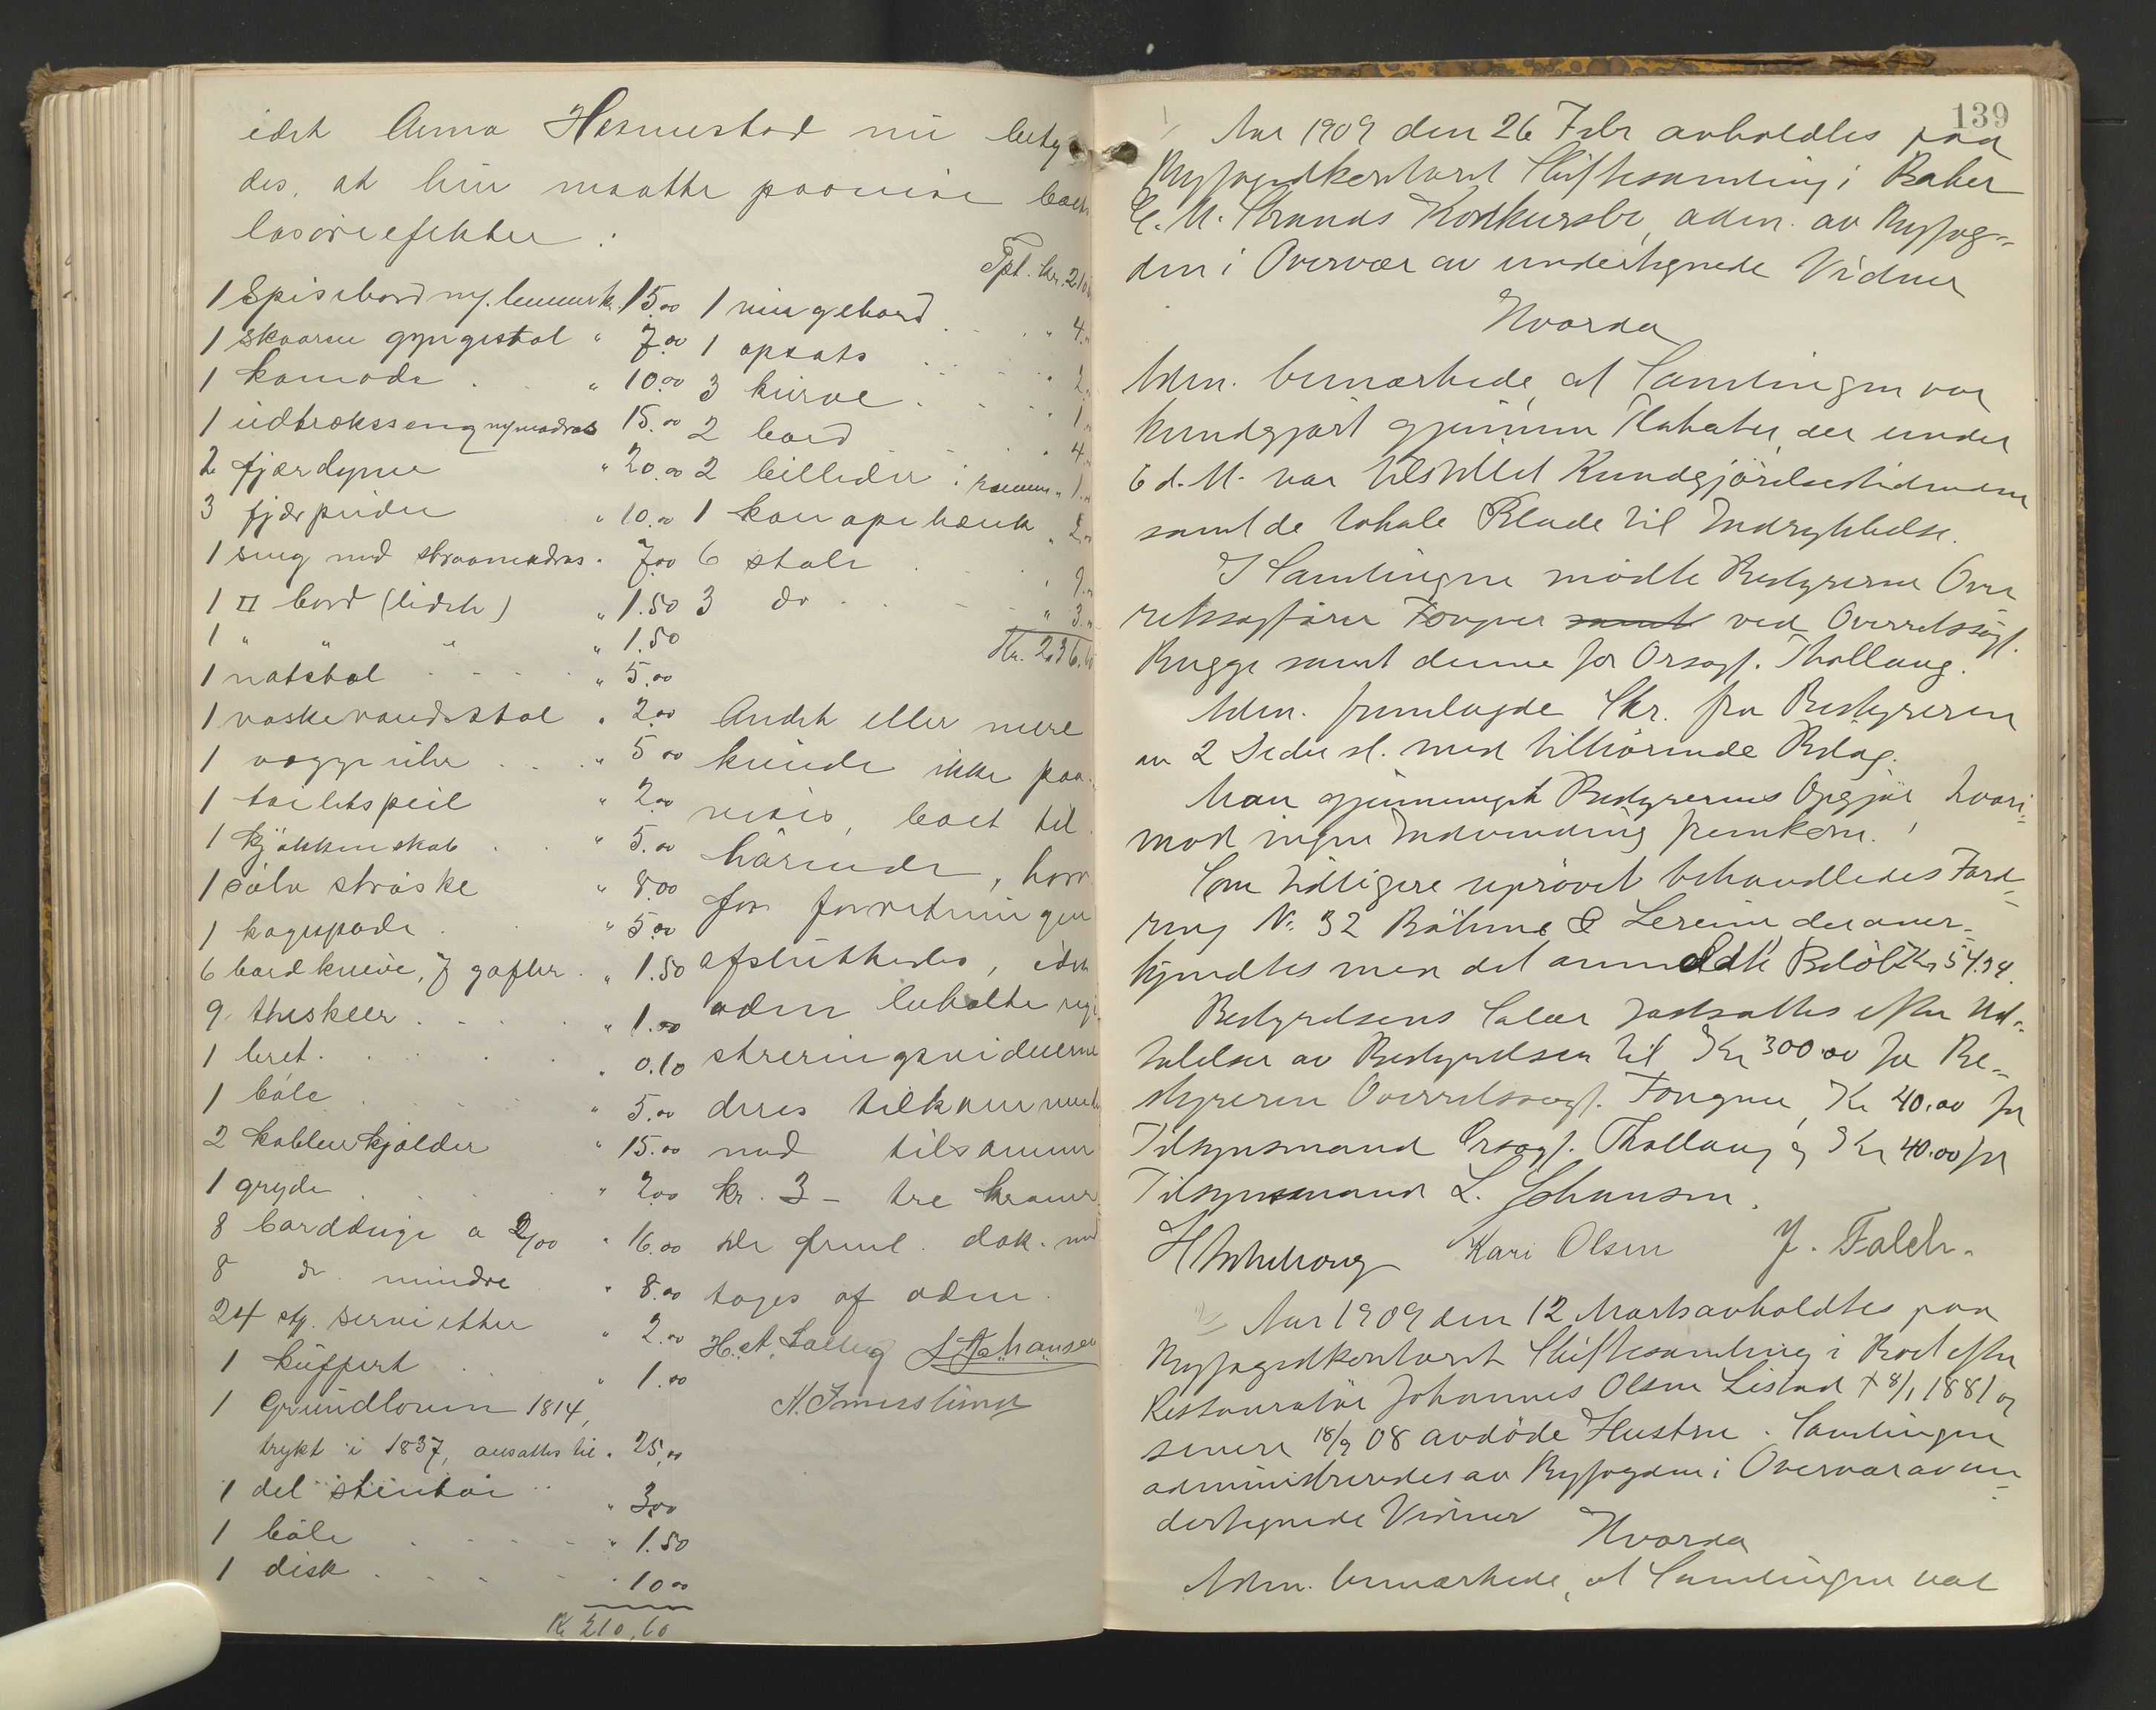 idet Anna Hesmestad nu betyde-
des, at hun maatte paavise boets
løsøreefekter:
1 Spisebord ny. bemerk. 15.00
1 skaaren gyngestol " 7.00
1 komode " 10.00
1 udtræksseng m/madras 15.00
2 fjærdyne " 20.00
3 fjærpuder " 10.00
1 seng med straamadras " 7.00
1 □ bord (lidet) " 1.50
1 " " " " 1.50
1 natstol " 5.00
1 vaskevandsstol " 2.00
1 vægguhr " 5.00
1 toiletspeil " 2.00
1 kjøkkenskab " 5.00
1 sølv strøske " 8.00
1 kagespade " 5.00
6 bordknive, 7 gafler " 1.50
9 theskeer " 1.00
1 bret " 0.10
1 bole " 5.00
2 kobberkjølder " 15.00
1 gryde " 2.00
8 bordduge a 2/00 " 16.00
8 do mindre " 8.00
24 stk. servietter " 2.00
1 kuffert " 1.00
1 Grundloven 1814,
trykt i 1837, ansattes til " 25.00
1 del stentøi " 3.00
1 bole " 1.50
1 disk " 10.00
Kr 210,60
Tpt. kr. 210
1 ringebord " 4.
1 opsats " 2.
3 kurve " 1.
2 bord " 4.
2 billeder i ramme " 1.
1 kanapebænk " 2.
6 stole " 9.
3 do " 3.
Kr. 236.60
Andet eller mere
kunde ikke paa-
vises, boet til-
hørende, hvor-
for forretningen
afsluttedes, idet
adm beholdte regi-
streringsvidnerne
deres tilkommende
med tilsammen
kr. 3 - tre kroner
De freml. dok. med
toges af adm.
H. A. Lalleg L Johansen
K. Imerslund
139
Aar 1909 den 26 Febr avholdtes paa
Byfogedkontoret Skiftesamling i Baker
C. M. Strands Konkursbo, adm. av Byfog-
den i Overvær av undertegnede Vidner
Hvorda
Adm. bemærkede, at Samlingen var
kundgjort gjennem Plakater, der under
6 d. M. var tilstillet Kundgjørelsestidenden
samt de lokale Blade til Indrykkelse.
I Samlingen mødte Bestyreren Over
retssagfører Fougner samt ved Overretssagf.
Bugge samt denne for Orsagf. Thallaug.
Adm. fremlagde Skr. fra Bestyreren
av 2 Deder sl. med tilhørende Bilag.
Man gjennemgik Bestyrerens Opgjør hvori-
mod ingen Indvending fremkom.
Som tidligere uprøvet behandledes Ford-
ring No. 32 Böhme & Lereim der aner-
kjendtes med det anmeldte Beløb Kr 54.94.
Bestyrelsens Salær fastsattes efter Ud-
talelse av Bestyrelsen til Kr 300.00 for Be-
styreren Overretssagf. Fougner, Kr 40.00 for
Tilsynsmand Orsagf. Thallaug og Kr 40.00 for
Tilsynsmand L. Johansen.
Kari Olsen J. Falch.
Aar 1909 den 12 Marts avholdtes paa
Byfogedkontoret Skiftesamling i Boet efter
Restauratør Johannes Olsen Listad † 8/1 1881 og
senere 18/9 08 avdøde Hustru. Samlingen
administreredes av Byfogden i Overvær av un-
dertegnede Vidner
Hvorda
Adm. bemærkede, at Samlingen var